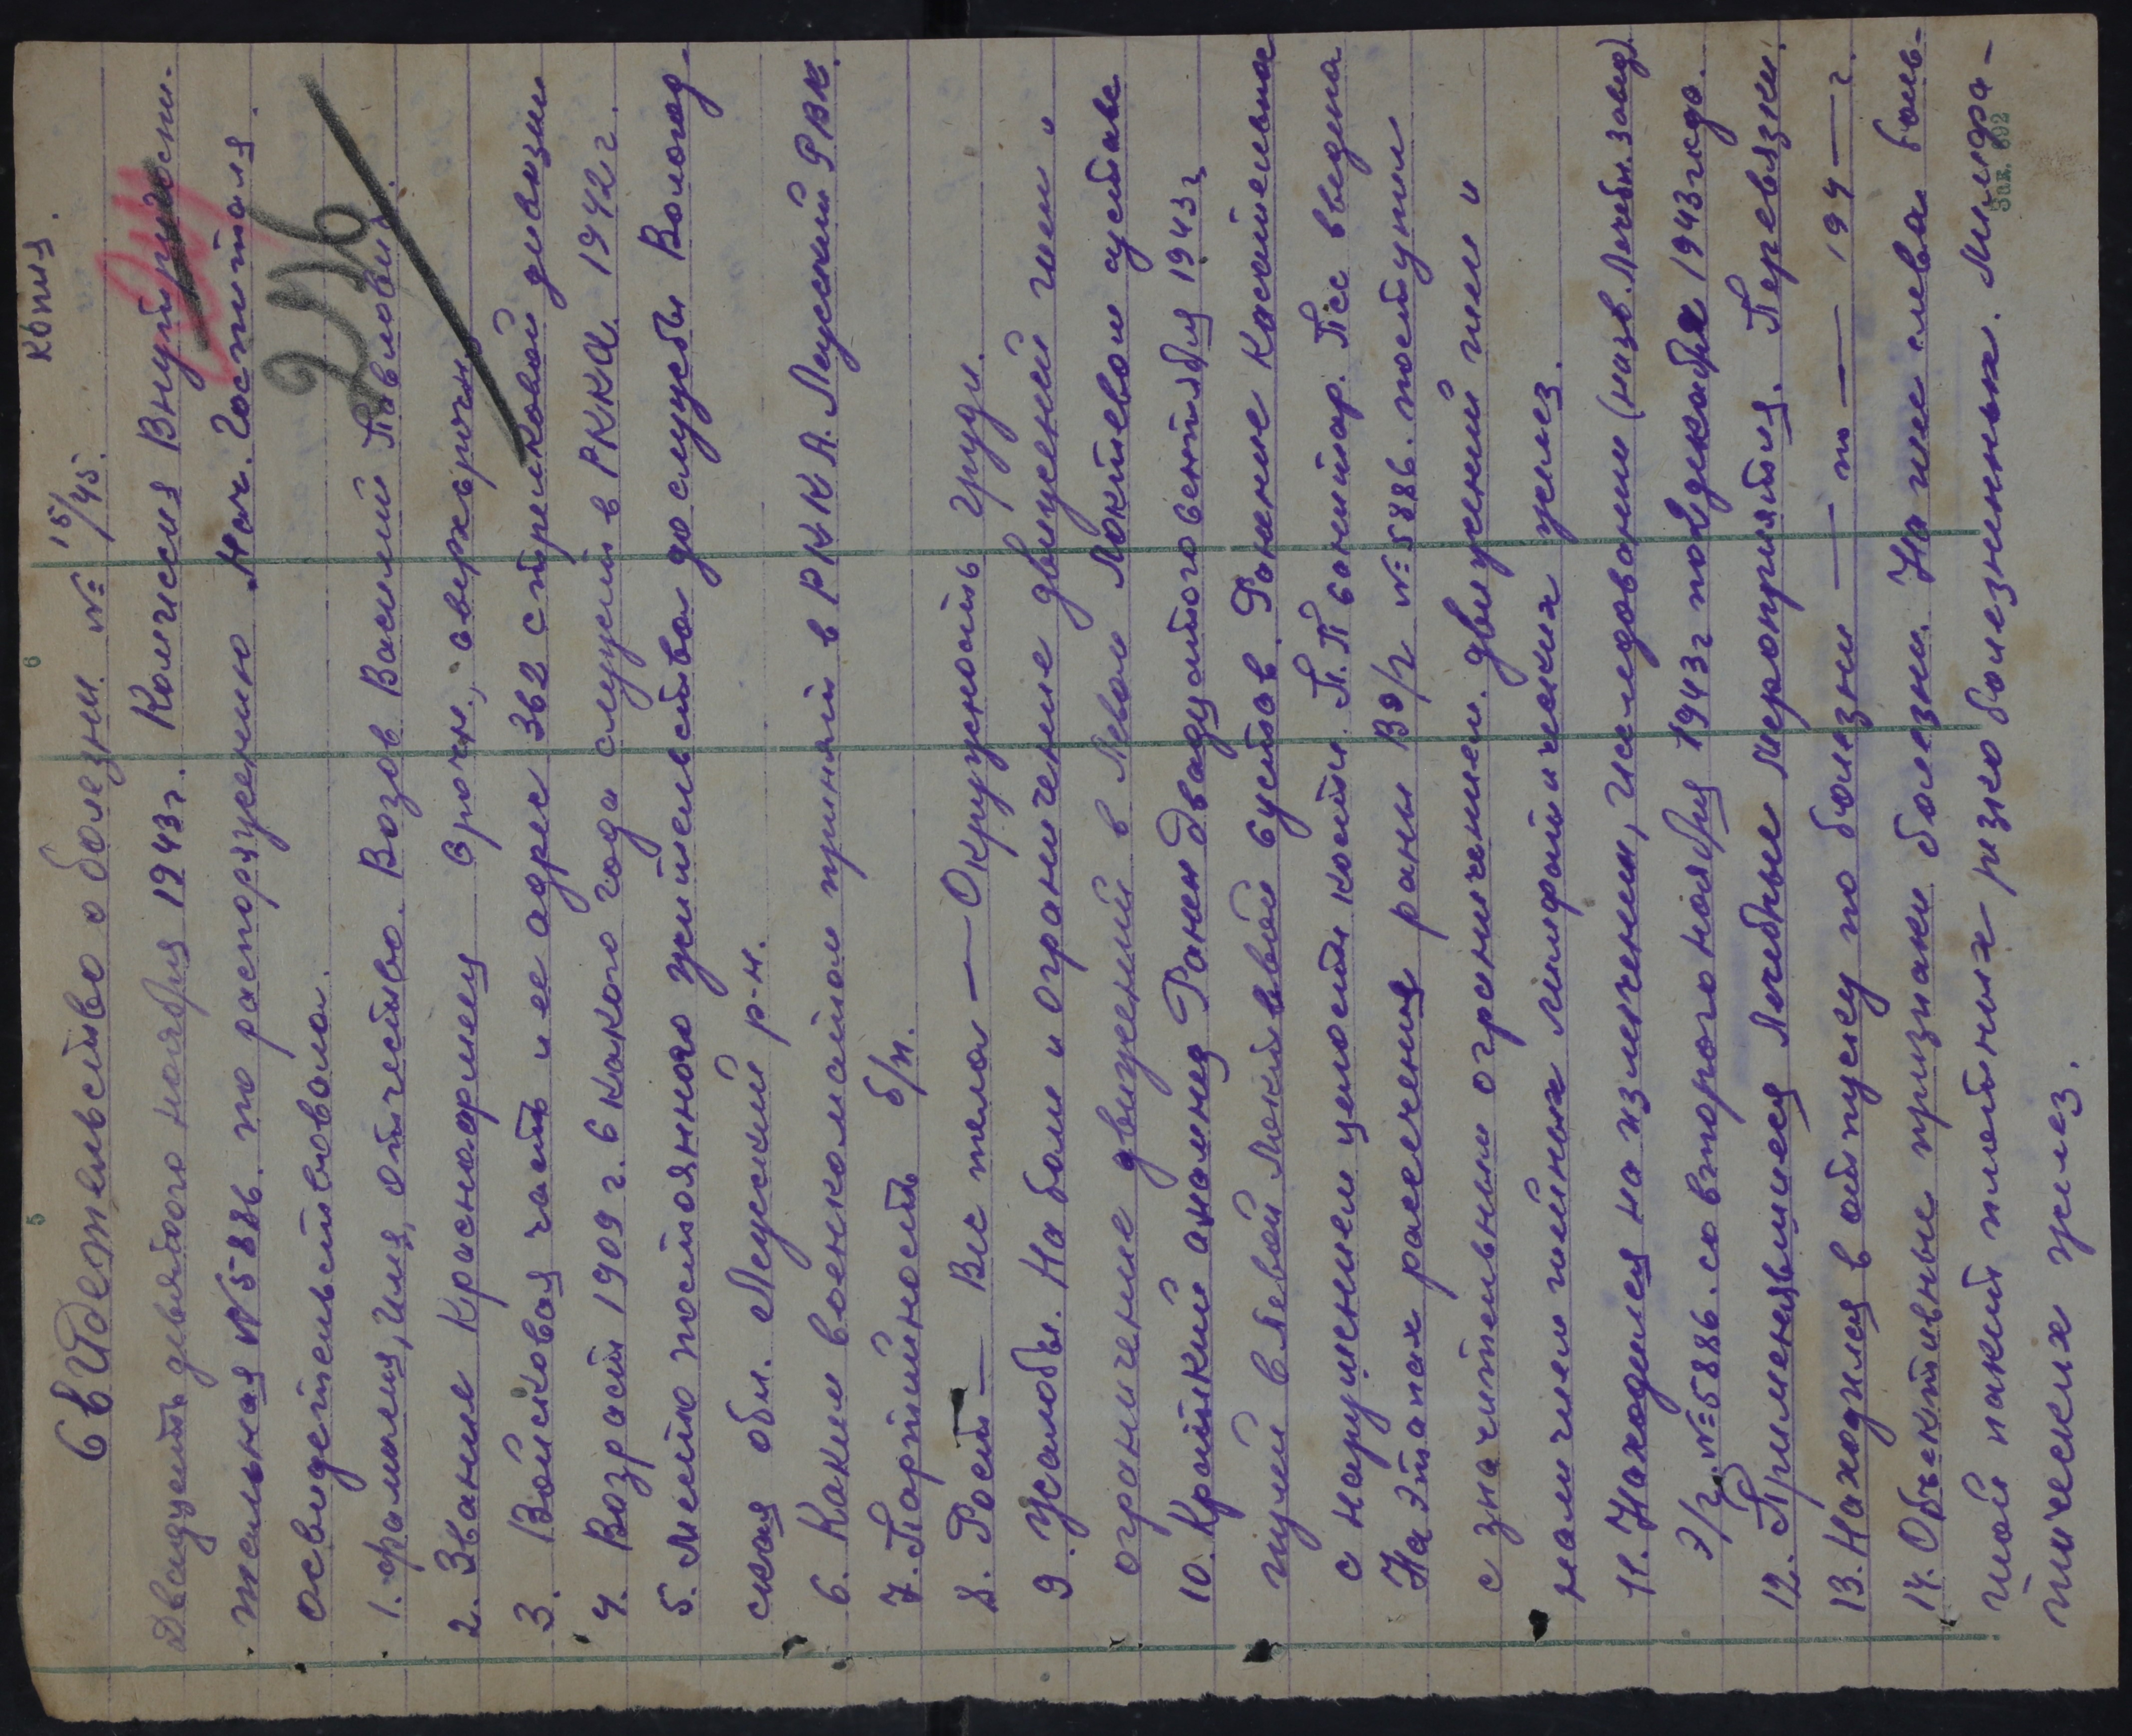 копия.
Свидетельство о болезни. № 15/45.
Двадцать девятого ноября 1943г. Комиссия Внутригоспи-
тальная №5886. по распоряжению Нач. Госпиталя.
освидетельствовала.
216
1. фамилия, Имя, отчество. Возов Василий Павлович.
2. Звание Красноармеец Срочн., сверхсрочн
3. Войсковая часть и ее адрес 362 стрелковой дивизии
4. Возраст 1909 г. С какого года служит в РККА. 1942 г.
5. Место постоянного жительства до службы Вологод-
ская обл. Леуский р-н.
6. Каким военкоматом принят в РККА. Леуский РВК.
7. Партийность б/п.
8. Рост — Вес тела — Окружность груди.
9. Жалобы. На боли и ограничение движений шеи "
ограничение движений в Левом Локтевом суставе
10. Краткий анамнез Ранен Двадцатого Сентября 1943г
пулей в Левой Локтевой Сустав. Ранение Касательное
с нарушением целости кости. П.П санитар. Псс введена
На Этапах рассечения раны В Э/г № 5886. поступил
с значительным огреничением. движений шеи "
наличием шейных лимфатических желез.
11. Находился на излечении, Иследовании (назв. Лечебн. завед).
Э/г. №5886. со второго ноября 1943г по 2 декабря 1943 года.
12. Применявшиеся Лечебные Мероприятия. Перевязки.
13. Находился в отпуске по болезни — по — 194 — г.
14. Объективные признаки болезни. На шее слева боль-
шой пакет плотных резко болезненных. Лимфа-
тических желез.
5
6
Зак. 692